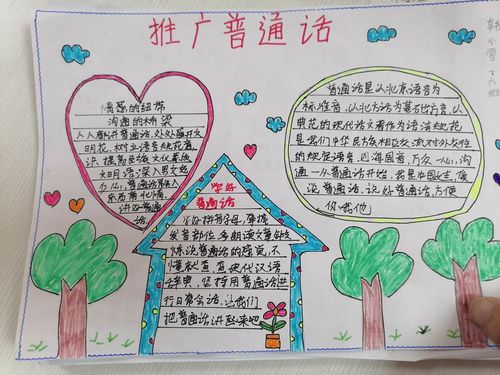 推广普通话
情感的纽带
沟通的桥梁
人人都讲普通话，处处盛开文
明花，树立语言规范意
识，提高民族文化素质
文明语，深入
方心，普通话
东西南北情
讲好普通
话
普通话是以北京语音为
标准音，以北方话为基础方言，以
典范的现代语文著作为语法规范
是我们中华民族相互交流对外友好
的规范语言，四海同音，万众一心，沟
通从普通话开始，我是中国
说普通话，说好普通话，方便
你我他
学好
普通话
学好拼音字母，掌握
发音部位，多朗读文章，多
练说普通话的感觉，不
懂就查，查现代汉语
坚持用普通话进
行日常会话，让我们
把普通话讲起来吧